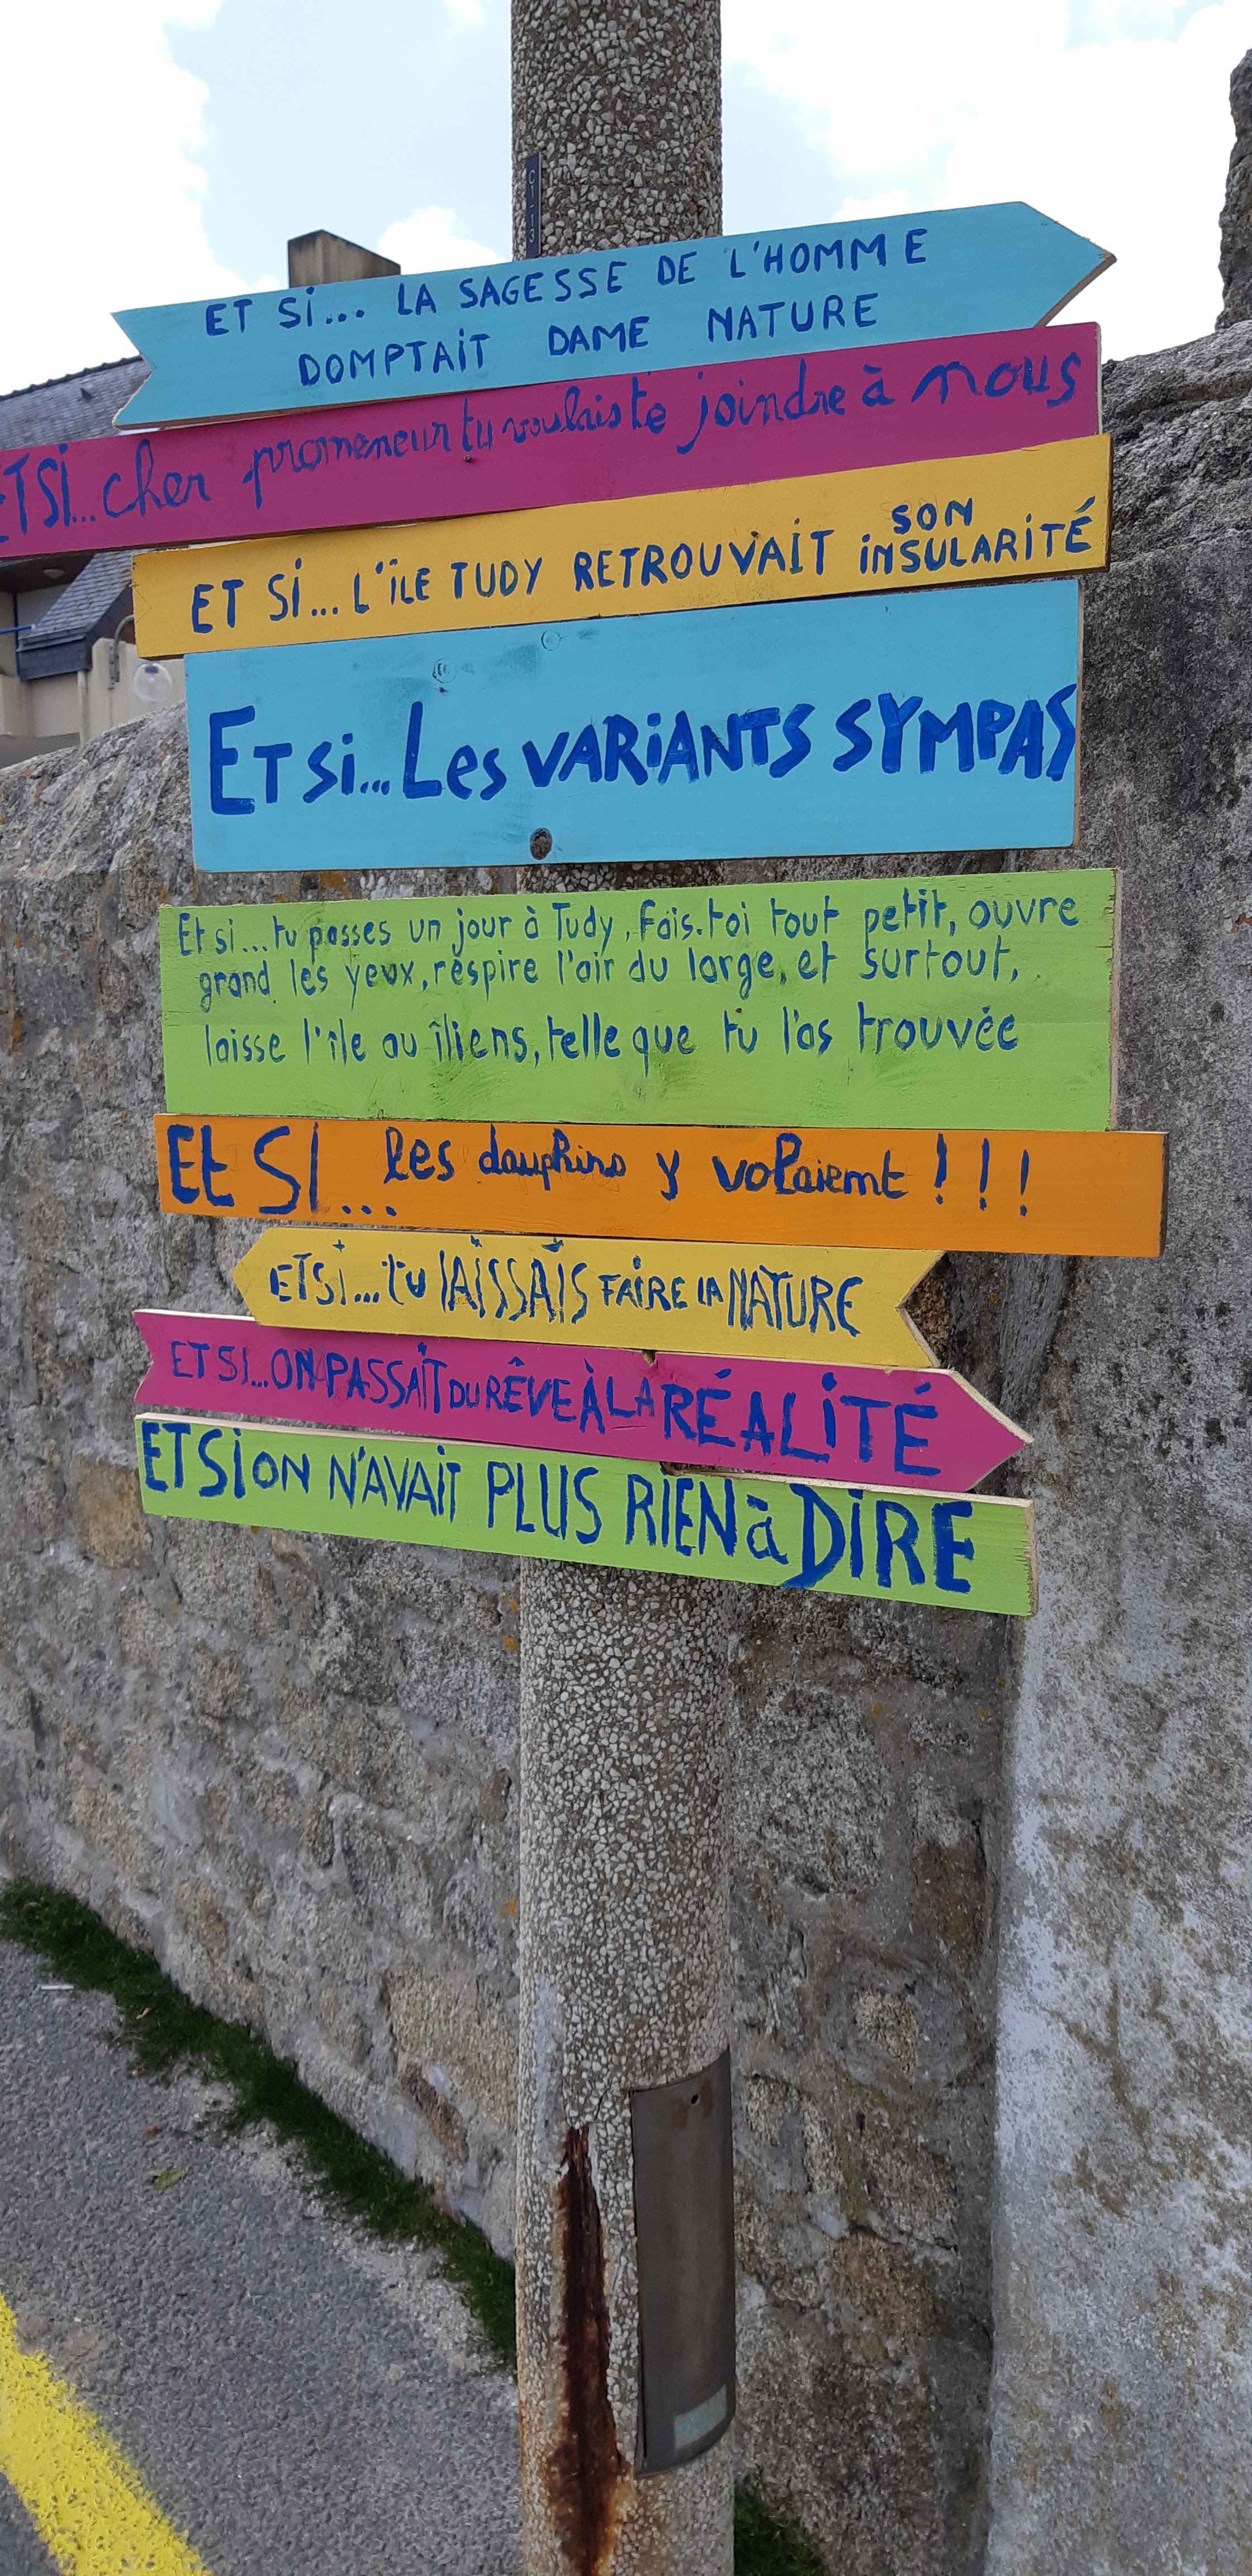 C1 13
ET Si... LA SAGESSE DE L'HOMME
DOMPTAiT DAME NATURE
ETSi... cher promeneur tu voulais te joindre à nous
ET Si... L'îLE TUDY RETROUVAiT SON iNSULARiTÉ
ET si... Les VARiANTS SYMPAS
Et si... tu passes un jour à Tudy, Fais-toi tout petit, ouvre
grand les yeux, respire l'air du large, et surtout,
laisse l'île au îliens, telle que tu l'as trouvée
Et SI... les dauphins y volaient !!!
ETSi... tu lAiSSAiS FAiRE LA NATURE
ET SI... ON PASSAiT DU RÊVE À LA RÉALiTÉ
ET Si ON N'AVAiT PLUS RIEN à DiRE